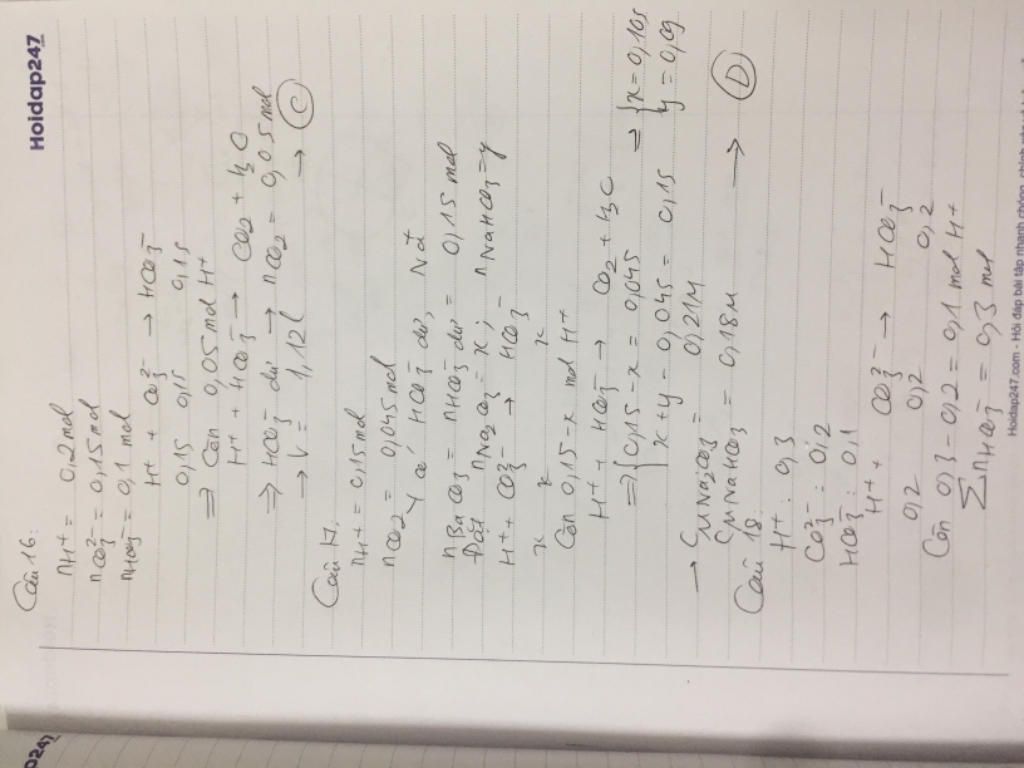 Hoidap247
Câu 16:
nH+ = 0,2 mol
nCO3^2- = 0,15 mol
nHCO3^- = 0,1 mol
H+ + CO3^2- → HCO3^-
0,15 0,15 0,15
⇒ Còn 0,05 mol H+
H+ + HCO3^- → CO2 + H2O
⇒ HCO3^- dư → nCO2 = 0,05 mol
→ V = 1,12l → C
Câu 17.
nH+ = 0,15 mol
nCO2 = 0,045 mol
Y có HCO3^- dư, Na+
nBaCO3 = nHCO3^- dư = 0,15 mol
Đặt nNa2CO3 = x, nNaHCO3 = y
H+ + CO3^2- → HCO3^-
x x x
Còn 0,15-x mol H+
H+ + HCO3^- → CO2 + H2O
⇒ { 0,15 - x = 0,045 ⇒ { x = 0,105
x + y - 0,045 = 0,15 y = 0,09
→ CM Na2CO3 = 0,21M
CM NaHCO3 = 0,18M → D
Câu 18.
H+ : 0,3
CO3^2- : 0,2
HCO3^- : 0,1
H+ + CO3^2- → HCO3^-
0,2 0,2 0,2
Còn 0,3 - 0,2 = 0,1 mol H+
∑nHCO3^- = 0,3 mol
Hoidap247.com - Hỏi đáp bài tập nhanh chóng, chính